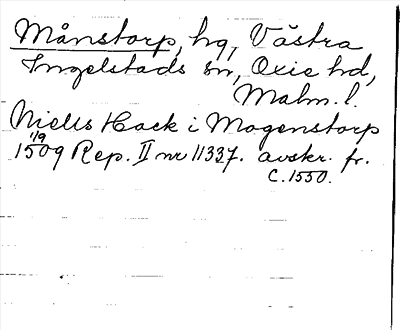 Månstorp, hg, Västra
Ingelstads sn, Oxie hd,
Malm. l.
Niels Hack i Mogenstorp
1/9
1509 Rep. II nr 11337. avskr. fr.
c. 1550.